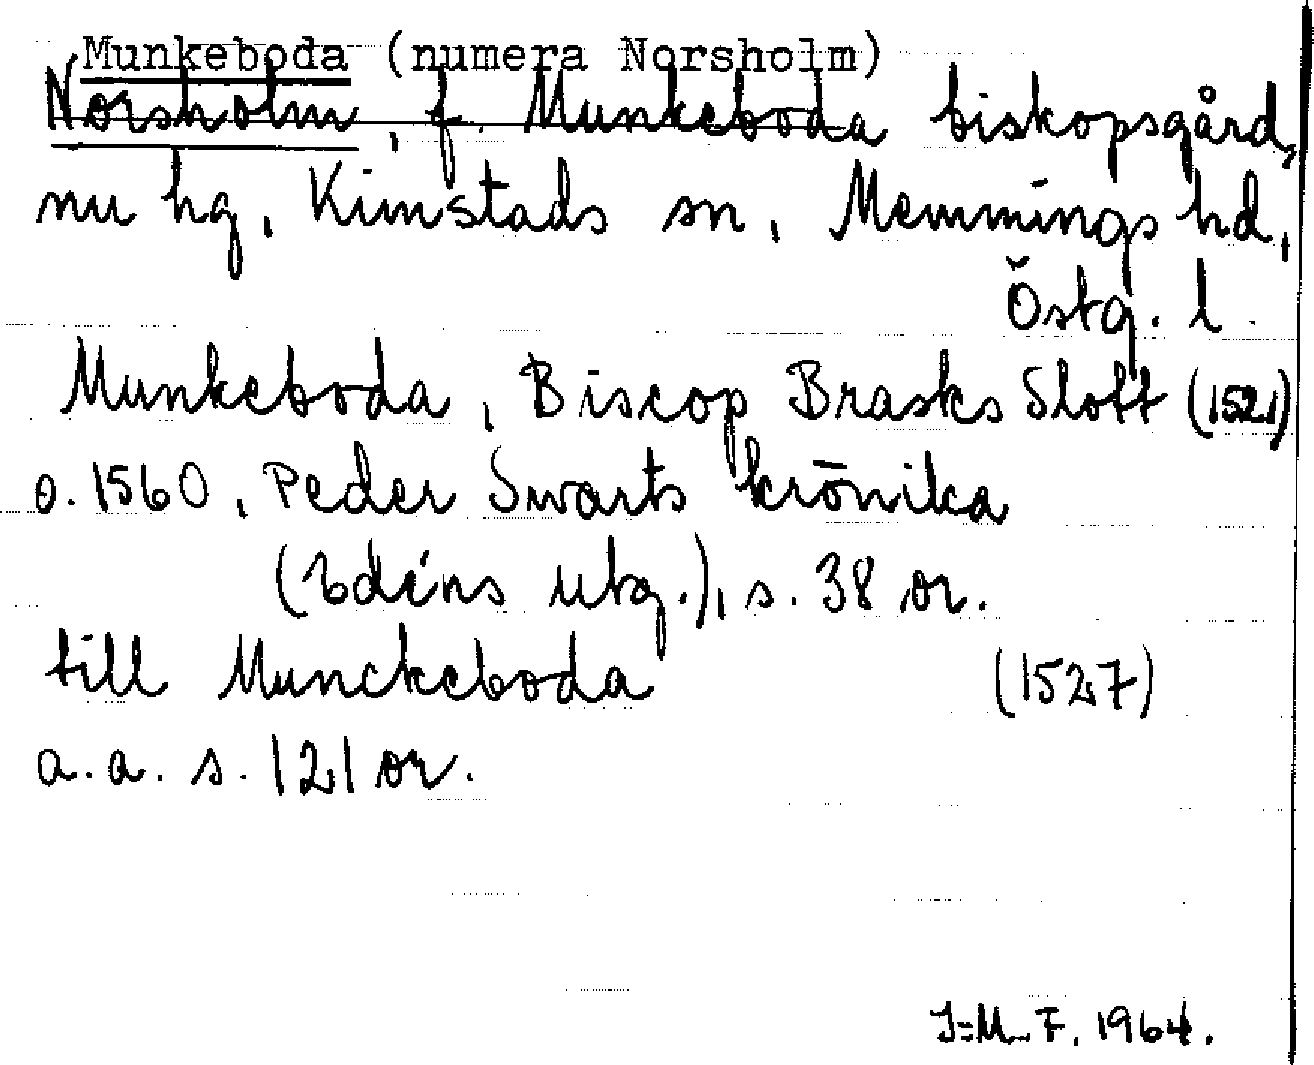 Munkeboda (numera Norsholm)
Norsholm, f. Munkeboda biskopsgård,
nu hg, Kimstads sn, Memmings hd,
Östg. l.
Munkeboda, Biscop Brasks Slott (1521)
o. 1560, Peder Swarts krönika
(Edéns utg.), s. 38 or.
till Munckeboda (1527)
a.a. s. 121 or.
I-M. F. 1964.